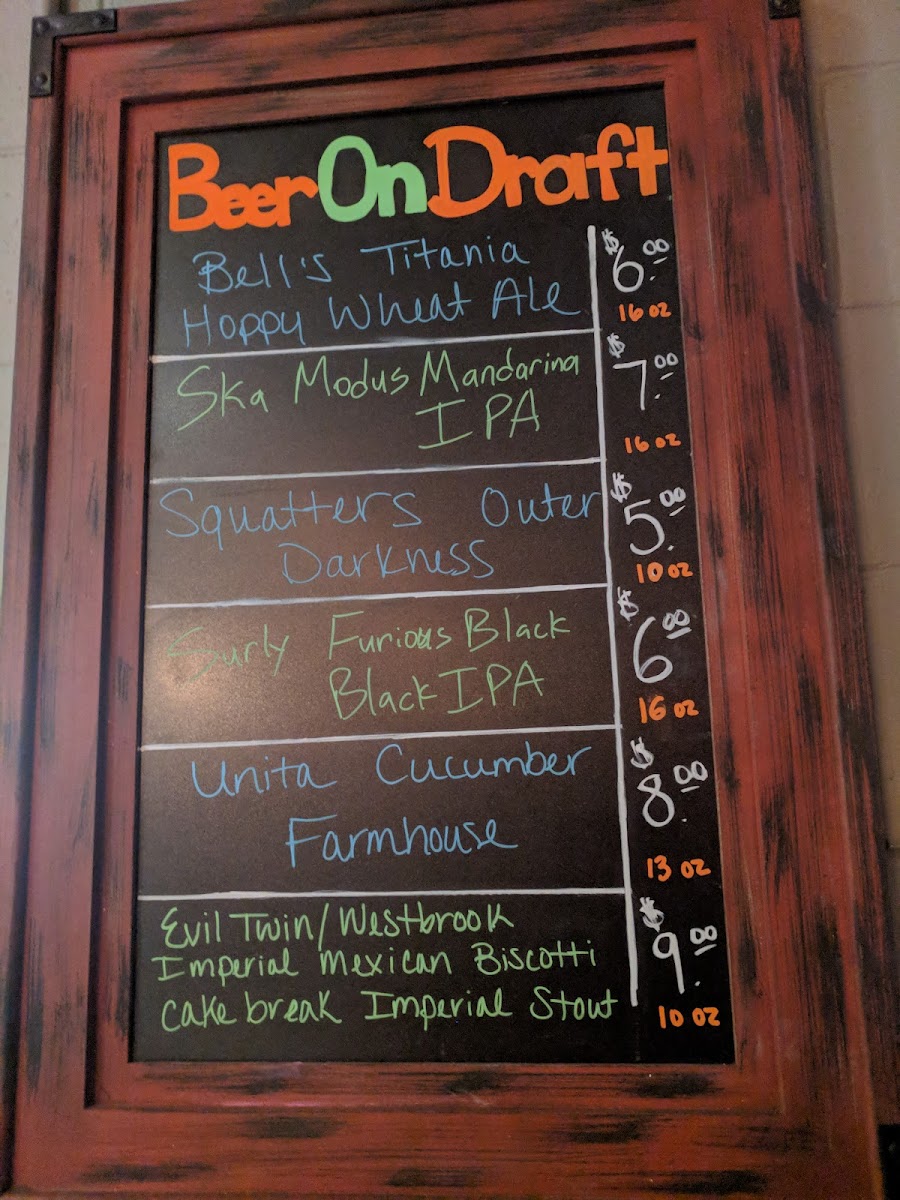 Beer On Draft
Bell's Titania
Hoppy Wheat Ale
$6.00
16 oz
Ska Modus Mandarina
IPA
$7.00
16 oz
Squatters Outer
Darkness
$5.00
10 oz
Surly Furious Black
Black IPA
$6.00
16 oz
Unita Cucumber
Farmhouse
$8.00
13 oz
Evil Twin/Westbrook
Imperial Mexican Biscotti
cake break Imperial Stout
$9.00
10 oz